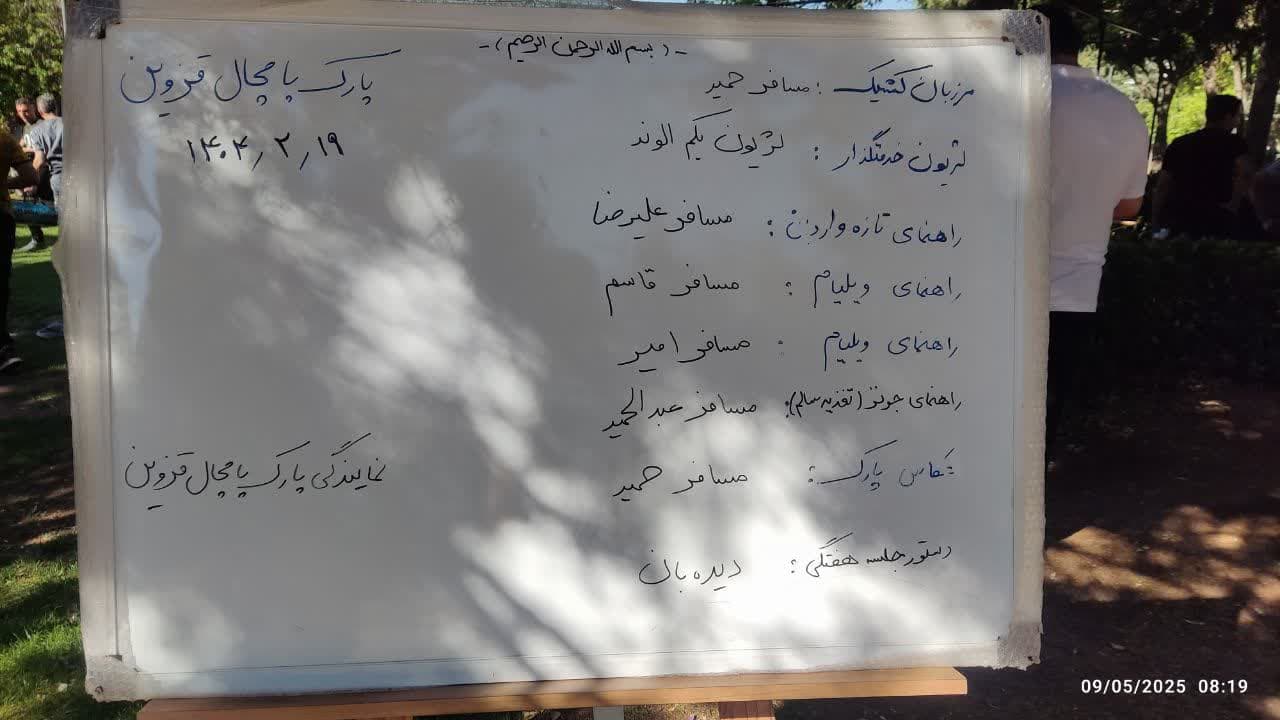 -( بسم الله الرحمن الرحیم )-
پارک پامچال قزوین
۱۴۰۴٫ ۲٫ ۱۹
مرزبان کشیک : مسافر حمید
لژیون خدمتگذار : لژیون یکم الوند
راهنمای تازه واردین : مسافر علیرضا
راهنمای ویلیام : مسافر قاسم
راهنمای ویلیام : مسافر امیر
راهنمای جونز (تغذیه سالم): مسافر عبدالحمید
عکاس پارک : مسافر حمید
نمایندگی پارک پامچال قزوین
دستور جلسه هفتگی : دیده بان
09/05/2025 08:19